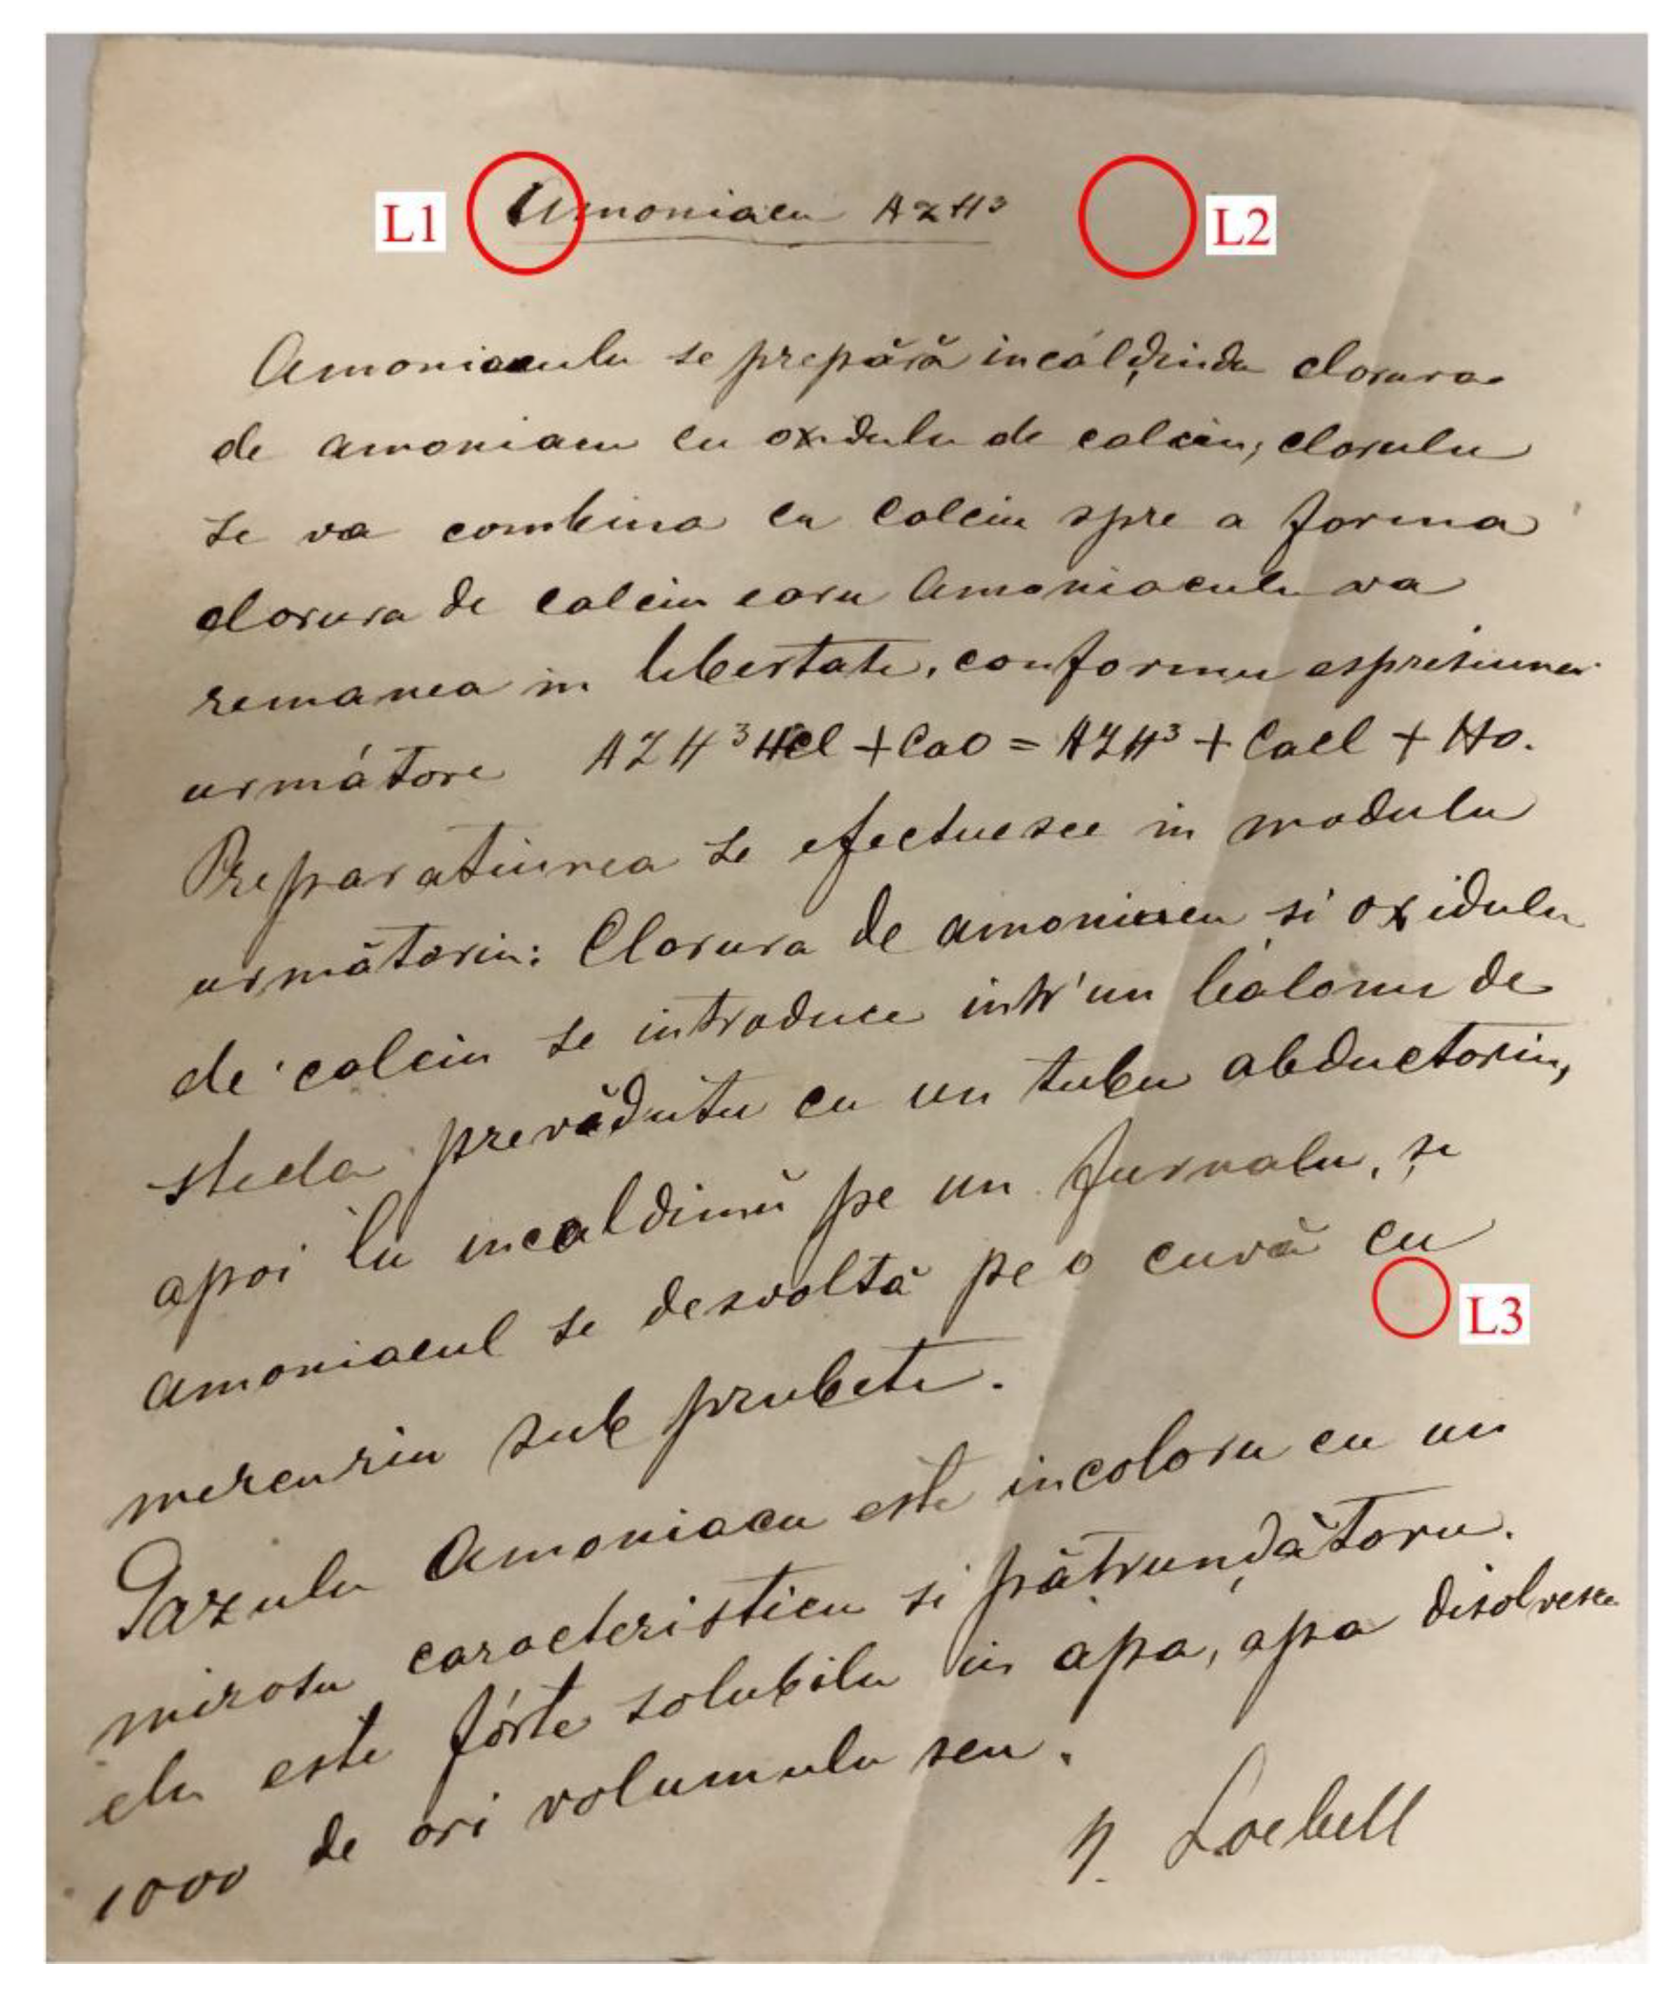 L1
Amoniacu AZH³
L2
Amoniacului se prepără incăldindu clorura
de amoniacu cu oxidulu de calciu, clorulu
se va combina cu calciu spre a forma
clorura de calciu earu amoniaculu va
remanea in libertate, conformu espresiunei
următore AZH³HCl + CaO = AZH³ + CaCl + HO.
Preparatiunea se efectuesce in modulu
următoriu: Clorura de amoniacu si oxidulu
de calciu se introduce intr'un balonu de
sticla prevădutu cu un tubu abductoriu,
apoi lu incaldimŭ pe un furnalu, și
amoniacul se desvoltă pe o cuvă cu
L3
mercuriu sub probete.
Gazulu Amoniacu este incoloru cu un
mirosu caracteristicu si pătrundătoru.
elu este fórte solubilu in apa, apa disolvesce
1000 de ori volumulu seu.
Loebell